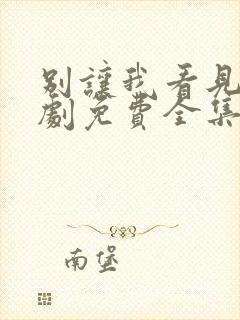 別讓我看見
劇免費全集
南堡